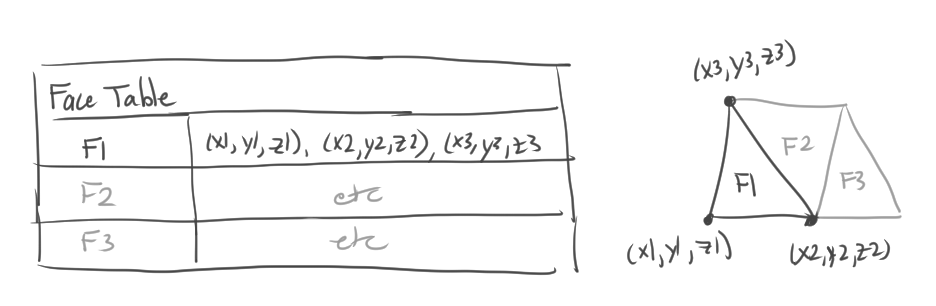 Face Table
F1 (x1, y1, z1), (x2, y2, z2), (x3, y3, z3
F2 etc
F3 etc
(x3, y3, z3)
F2
F1 F3
(x1, y1, z1) (x2, y2, z2)